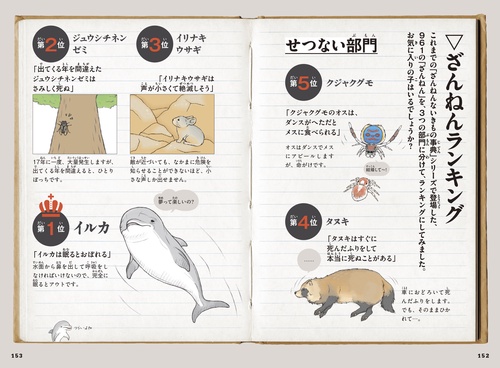 ▽ざんねんランキング
これまでの『ざんねんないきもの事典』シリーズで登場した、
961の「ざんねん」を、3つの部門に分けて、ランキングにしてみました。
お気に入りの子はいるでしょうか?
せつない部門
第5位
クジャクグモ
「クジャクグモのオスは、
ダンスがへただと
メスに食べられる」
オスはダンスでメス
にアピールします
が、命がけです。
第4位
タヌキ
「タヌキはすぐに
死んだふりをして
本当に死ぬことがある」
車におどろいて死
んだふりをします。
でも、そのままひか
れて…。
152
第3位
イリナキ
ウサギ
「イリナキウサギは
声が小さくて絶滅しそう」
敵が近づいても、なかまに危険を
知らせることができないほど、小
さな声しか出せません。
第2位
ジュウシチネン
ゼミ
「出てくる年を間違えた
ジュウシチネンゼミは
さみしく死ぬ」
17年に一度、大量発生しますが、
出てくる年を間違えると、ひとり
ぼっちです。
第1位
イルカ
「イルカは眠るとおぼれる」
水面から鼻を出して呼吸をし
なければいけないので、完全に
眠るとアウトです。
夢って楽しいの?
153